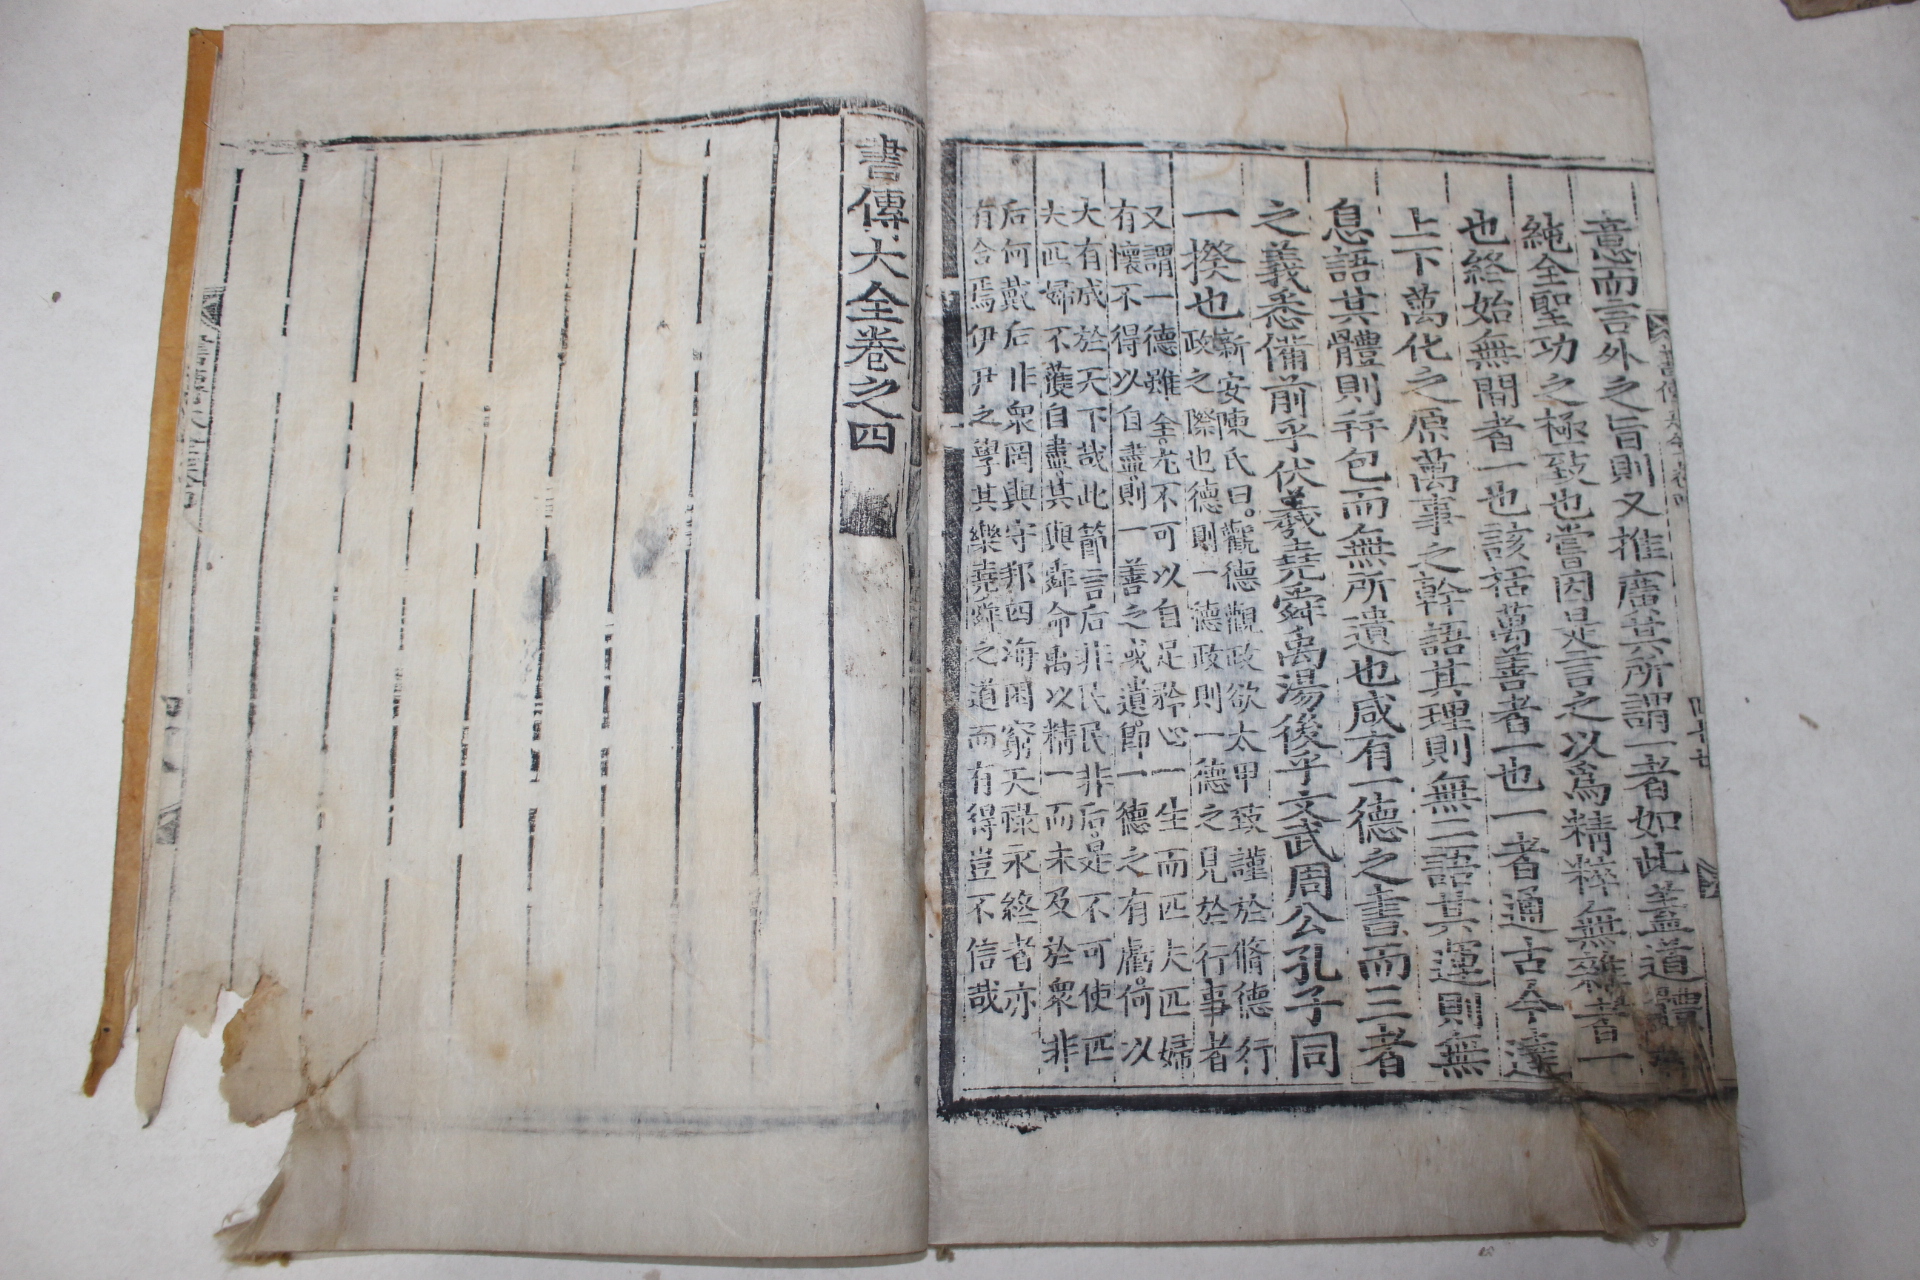 意而言外之旨則又推廣其所謂一者如此盖道體
純全聖功之極致也嘗因是言之以爲精粹無雜者一
也終始無間者一也該括萬善者一也一者通古今達
上下萬化之原萬事之幹語其理則無二語其運則無
息語其體則幷包而無所遺也咸有一德之書而三者
之義悉備前乎伏羲堯舜禹湯後乎文武周公孔子同
一揆也
新安陳氏曰觀德觀政欲太甲致謹於脩德行
政之際也德則一德政則一德之見於行事者
又謂一德雖全尤不可以自足矜心一生而匹夫匹婦
有懷不得以自盡則一善之或遺卽一德之有虧何以
大有成於天下哉此節言后非民民非后是不可使匹
夫匹婦不獲自盡其與舜命禹以精一而未及於衆非
后何戴后非衆罔與守邦四海困窮天祿永終者亦
有合焉伊尹之學其樂堯舜之道而有得豈不信哉
書傳大全卷之四